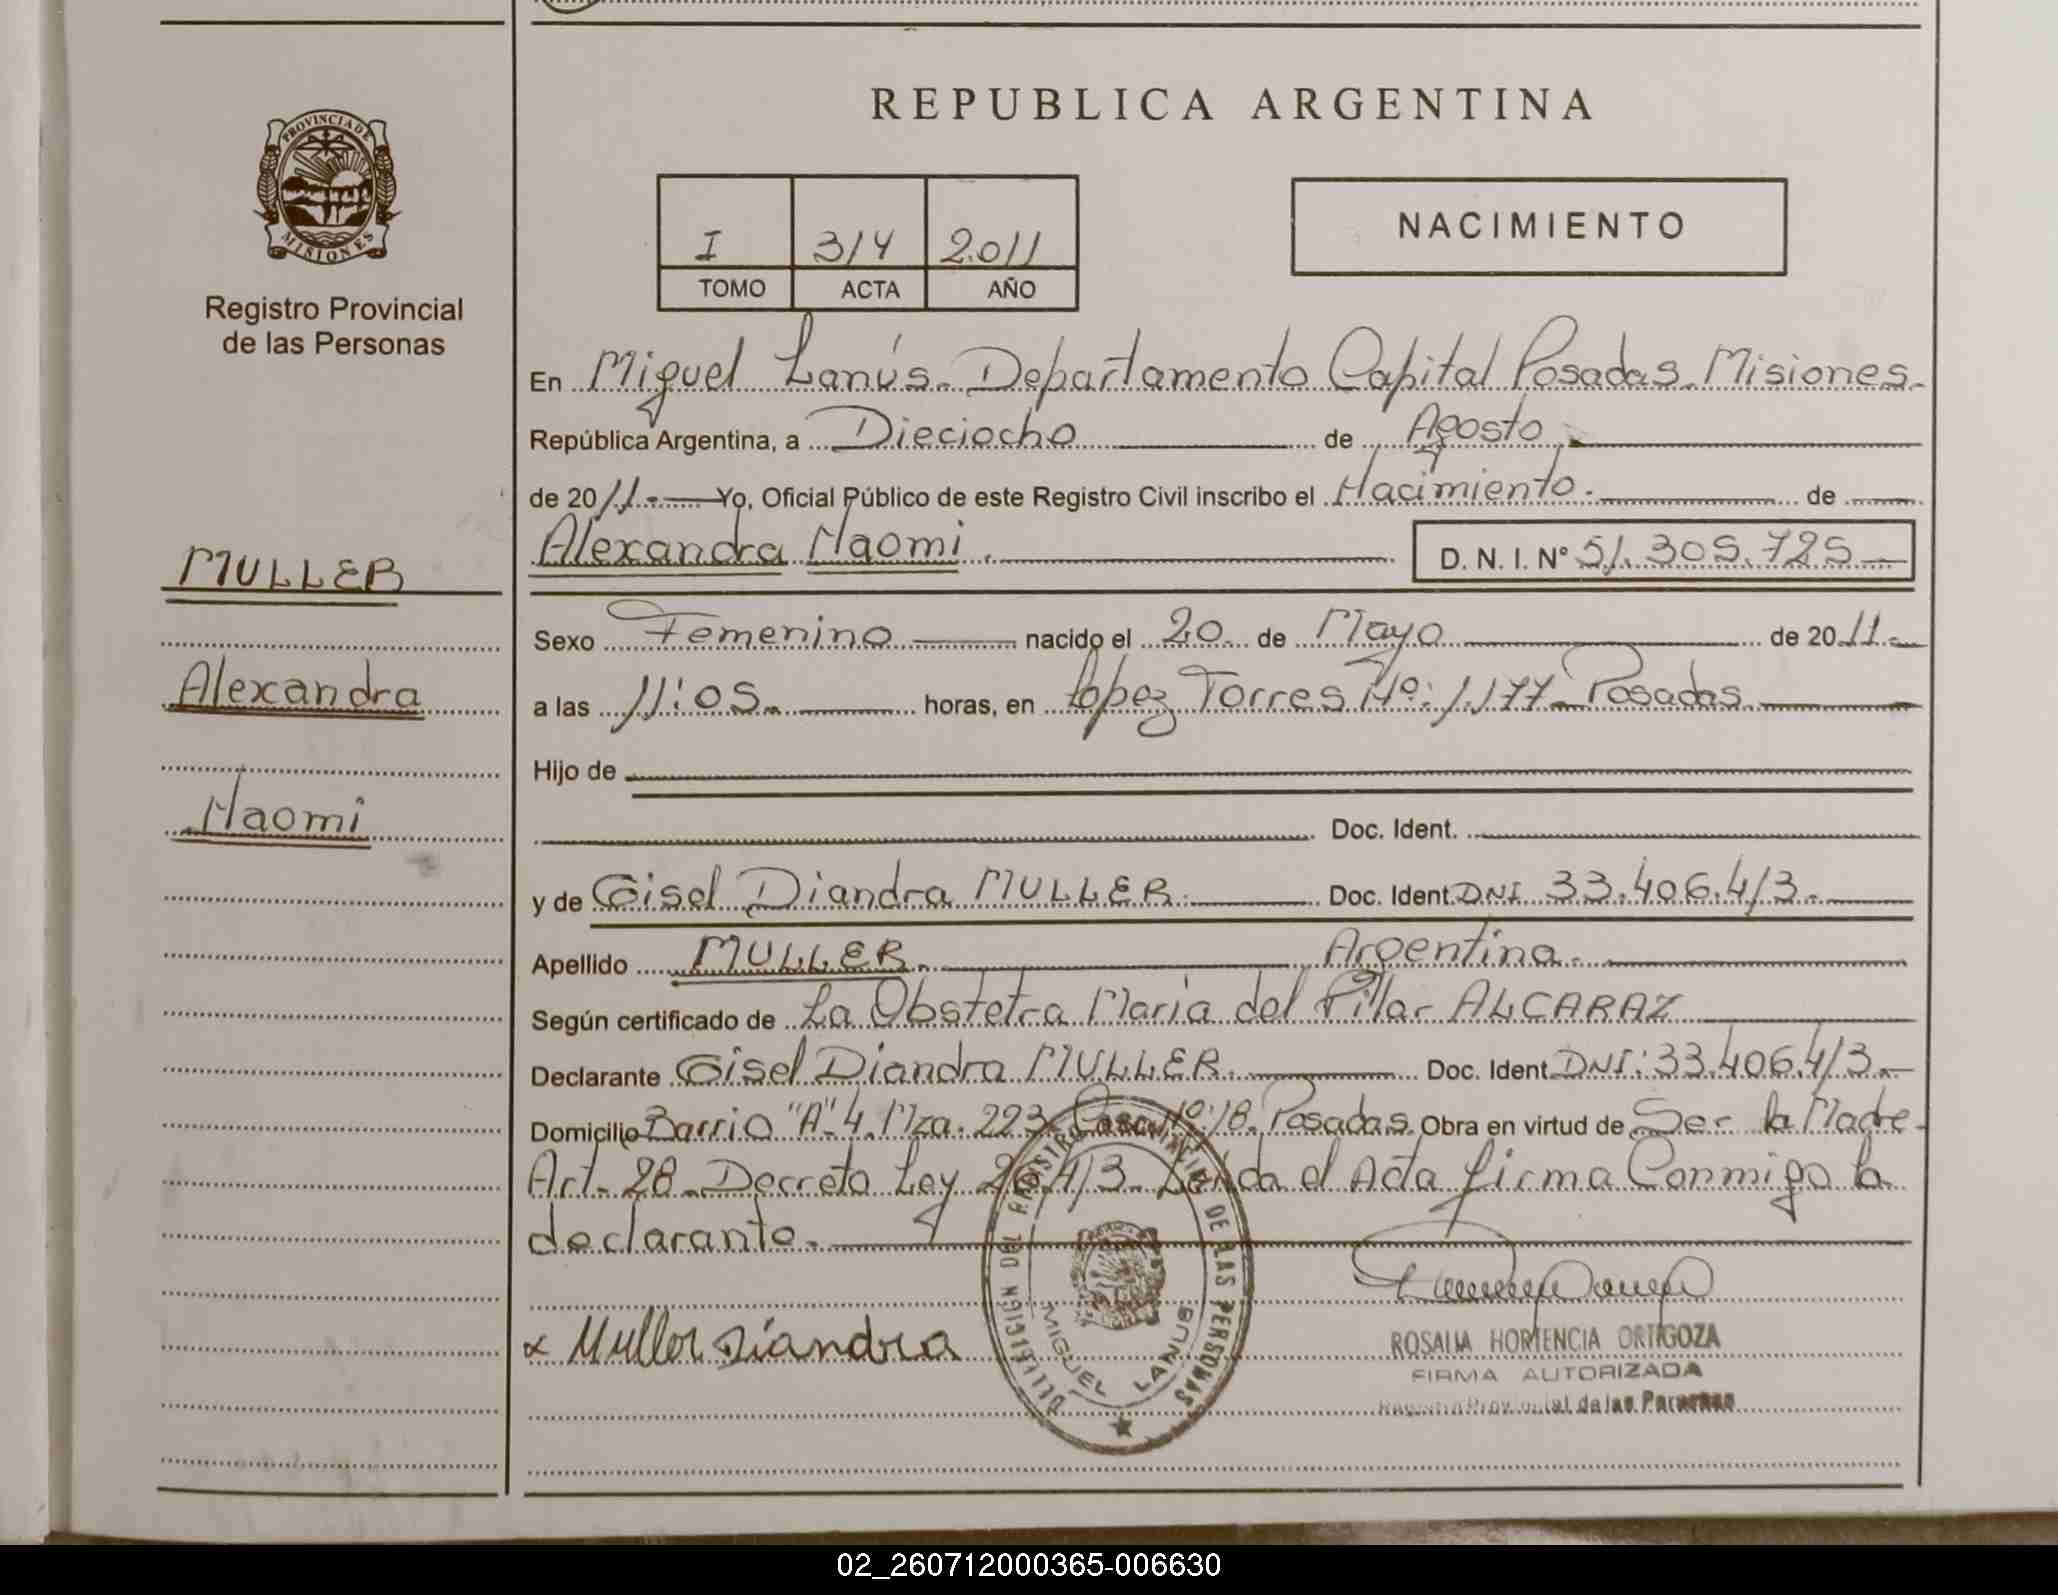 REPUBLICA ARGENTINA
PROVINCIA DE MISIONES
Registro Provincial
de las Personas
I 314 2.011
TOMO ACTA AÑO
NACIMIENTO
En Miguel Lanús. Departamento Capital Posadas. Misiones.
República Argentina, a Dieciocho de Agosto
de 2011.- Yo, Oficial Público de este Registro Civil inscribo el Nacimiento. de
Alexandra Naomi. D. N. I. Nº 51.305.725
MULLER
Alexandra
Naomi
Sexo Femenino nacido el 20 de Mayo de 2011.
a las 11:05. horas, en López Torres Nº: 1.177. Posadas
Hijo de
Doc. Ident.
y de Gisel Diandra MULLER. Doc. Ident. DNI 33.406.413.
Apellido MULLER. Argentina.
Según certificado de La Obstetra María del Pilar ALCARAZ
Declarante Gisel Diandra MULLER. Doc. Ident. DNI: 33.406.413.
Domicilio Barrio "A" 4. Mza. 223. Casa Nº: 18. Posadas. Obra en virtud de Ser la Madre
Art. 28. Decreto Ley 26.413. Leída el Acta firma Conmigo la
declarante.
x Muller Diandra
DELEGACION DEL REGISTRO PROVINCIAL DE LAS PERSONAS
MIGUEL LANUS
ROSALIA HORTENCIA ORTIGOZA
FIRMA AUTORIZADA
Registro Provincial de las Personas
02_260712000365-006630